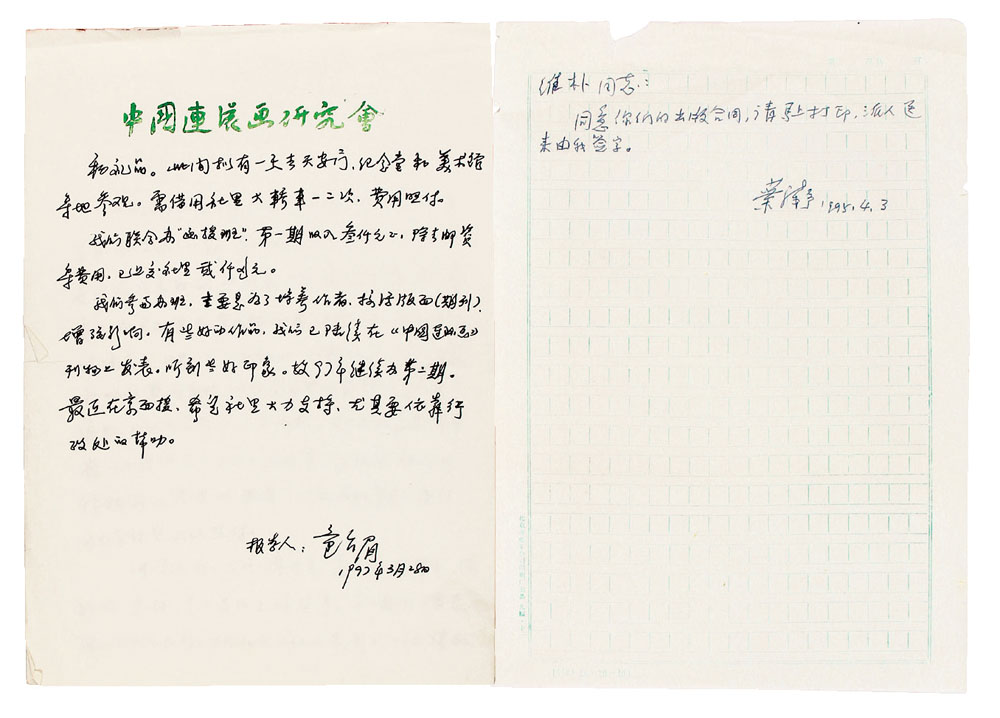 中國連環画研究會
和礼品。此间拟有一天去天安门,纪念堂和美术馆
等地参观。需借用社里大轿车一二次,费用照付。
我们联合办"函授班",第一期收入叁仟元,除去邮资
等费用,已上交社里贰仟元。
我们举办班,主要是为了培养作者,扩活版面(期刊),
增强影响。有些好的作品,我们已陆续在《中国连环画》
刊物上发表。听到些好印象。故97年继续办第二期。
最近在京面授,希望社里大力支持,尤其要依靠行
政处的帮助。
报告人:
1997年3月28日
维朴同志:
同意你们的出版合同,请马上打印,派人送
来由我签字。
1995.4.3